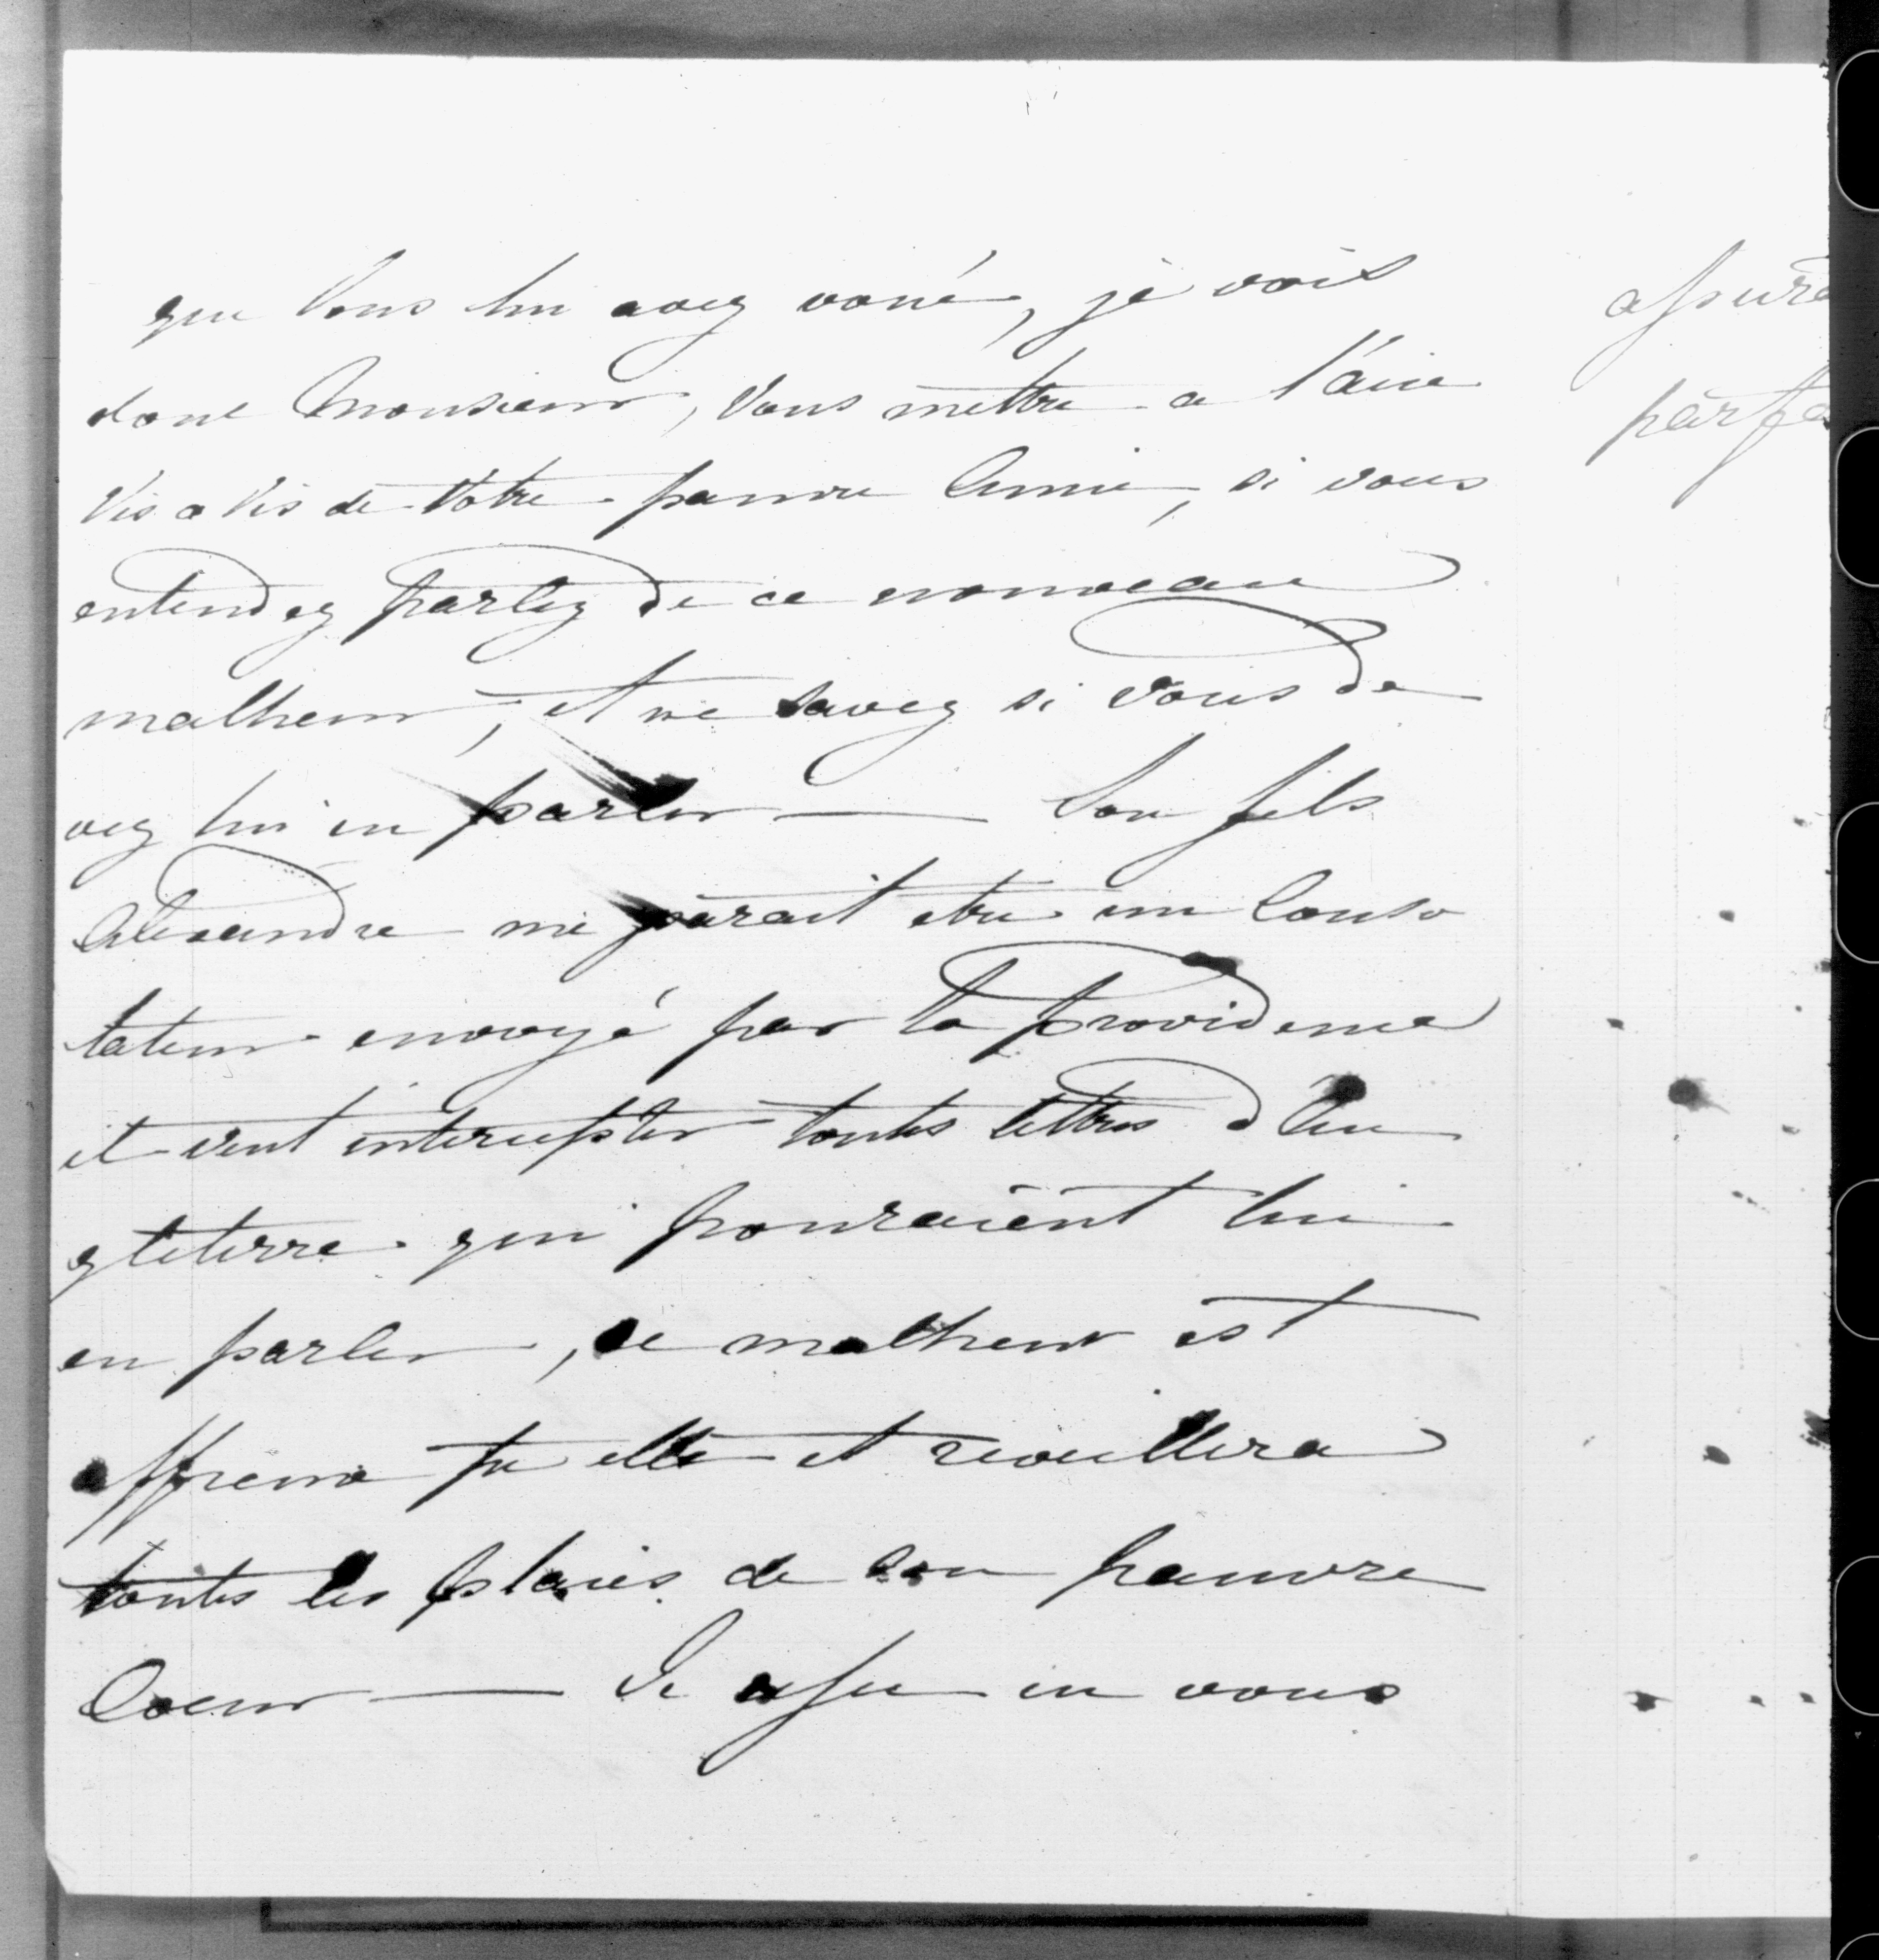 que Vous lui avez voué, je vois
donc Monsieur, Vous mettre a l'aise
Vis a Vis de Votre pauvre Amie, si vous
entendez parlez de ce nouveau
malheur, et ne savez si vous de
vez lui en parler — Son fils
Alexandre me parait etre un Conso
lateur envoyé par la Providence
il veut intercepter toutes lettres d'An
gleterre qui pouraient lui
en parler, ce malheur est
affreux pr elle et reveillera
toutes les plaies de son pauvre
Coeur — Je use en vous
assuré
parfa